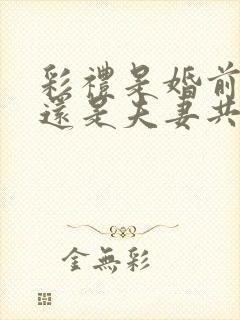 彩禮是婚前
還是夫妻共
金無彩